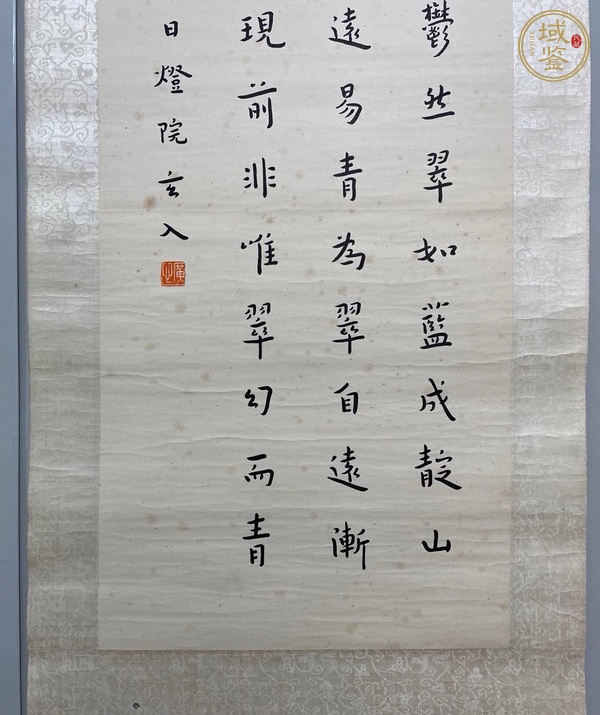 鬱然翠如藍成靛山
遠易青為翠自遠漸
現前非唯翠幻而青
日燈院玄入
黃
域鉴